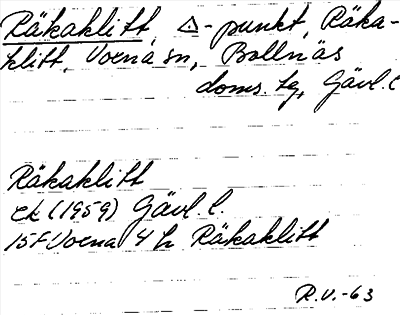 Räkaklitt, △-punkt, Räka-
klitt, Voxna sn, Bollnäs
doms. tg, Gävl. l
Räkaklitt
ek (1959) Gävl. l.
15F Voxna 4 h Räkaklitt
R.V.-63